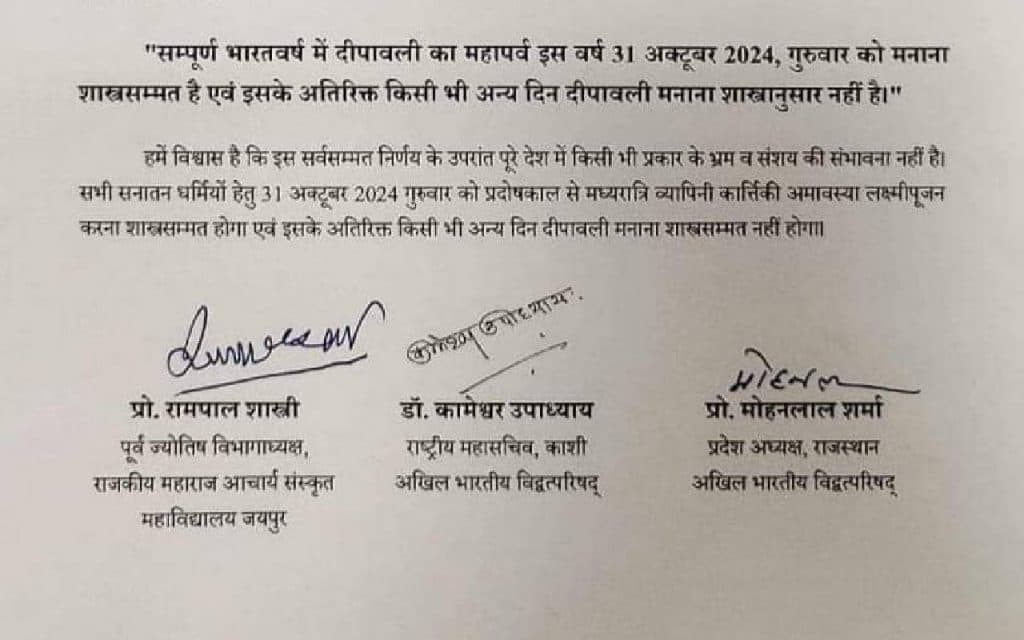 "सम्पूर्ण भारतवर्ष में दीपावली का महापर्व इस वर्ष 31 अक्टूबर 2024, गुरुवार को मनाना
शास्त्रसम्मत है एवं इसके अतिरिक्त किसी भी अन्य दिन दीपावली मनाना शास्त्रानुसार नहीं है।"
हमें विश्वास है कि इस सर्वसम्मत निर्णय के उपरांत पूरे देश में किसी भी प्रकार के भ्रम व संशय की संभावना नहीं है।
सभी सनातन धर्मियों हेतु 31 अक्टूबर 2024 गुरुवार को प्रदोषकाल से मध्यरात्रि व्यापिनी कार्त्तिकी अमावस्या लक्ष्मीपूजन
करना शास्त्रसम्मत होगा एवं इसके अतिरिक्त किसी भी अन्य दिन दीपावली मनाना शास्त्रसम्मत नहीं होगा।
कामेश्वर उपाध्याय
मोहनलाल
प्रो. रामपाल शास्त्री डॉ. कामेश्वर उपाध्याय प्रो. मोहनलाल शर्मा
पूर्व ज्योतिष विभागाध्यक्ष, राष्ट्रीय महासचिव, काशी प्रदेश अध्यक्ष, राजस्थान
राजकीय महाराज आचार्य संस्कृत अखिल भारतीय विद्वत्परिषद् अखिल भारतीय विद्वत्परिषद्
महाविद्यालय जयपुर